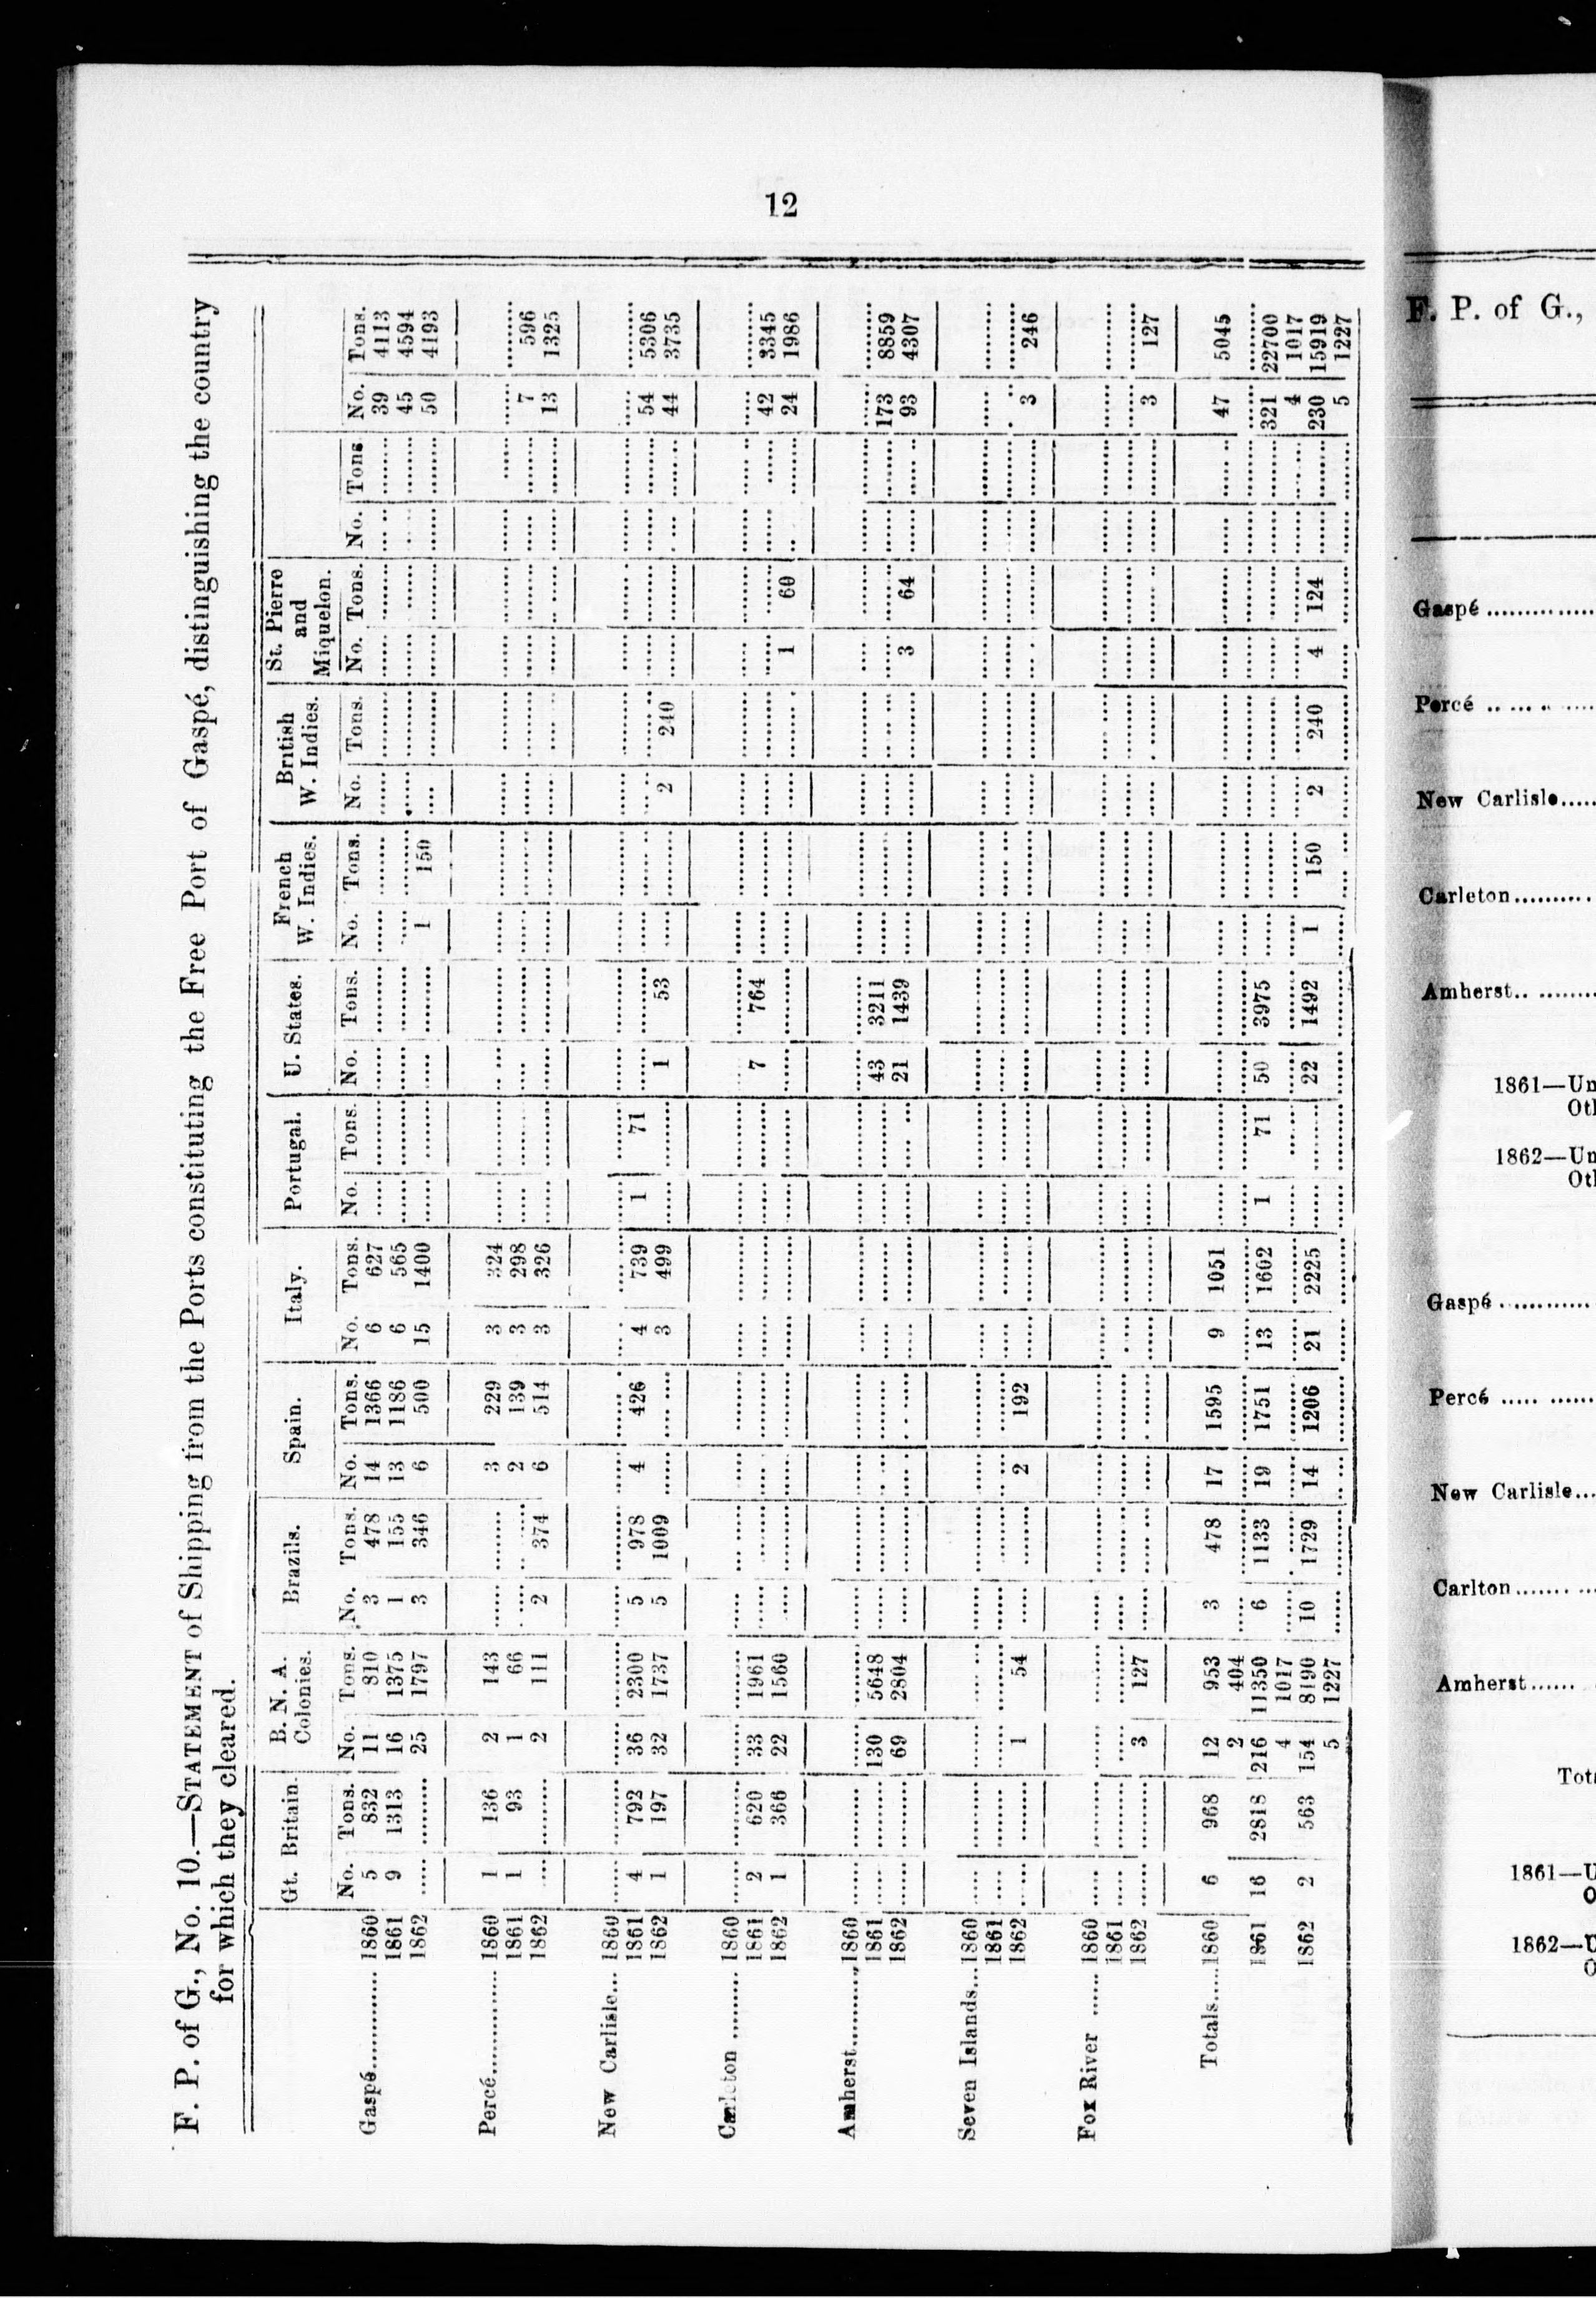 12
F. P. of G., No. 10.—STATEMENT of Shipping from the Ports constituting the Free Port of Gaspé, distinguishing the country
for which they cleared.
Gt. Britain. B. N. A. Colonies. Brazils. Spain. Italy. Portugal. U. States. French W. Indies. British W. Indies. St. Pierre and Miquelon.
No. Tons. No. Tons. No. Tons. No. Tons. No. Tons. No. Tons. No. Tons. No. Tons. No. Tons. No. Tons. No. Tons No. Tons.
Gaspé............ 1860 5 832 11 810 3 478 14 1366 6 627 ...... ...... ...... ...... ...... ...... ...... ...... ...... ...... ...... ...... 39 4113
1861 9 1313 16 1375 1 155 13 1186 6 565 ...... ...... ...... ...... ...... ...... ...... ...... ...... ...... ...... ...... 45 4594
1862 ...... ...... 25 1797 3 346 6 500 15 1400 ...... ...... ...... ...... 1 150 ...... ...... ...... ...... ...... ...... 50 4193
Percé............ 1860 1 136 2 143 ...... ...... 3 229 3 324 ...... ...... ...... ...... ...... ...... ...... ...... ...... ...... ...... ...... ...... ......
1861 1 93 1 66 ...... ...... 2 139 3 298 ...... ...... ...... ...... ...... ...... ...... ...... ...... ...... ...... ...... 7 596
1862 ...... ...... 2 111 2 374 6 514 3 326 ...... ...... ...... ...... ...... ...... ...... ...... ...... ...... ...... ...... 13 1325
New Carlisle... 1860 ...... ...... ...... ...... ...... ...... ...... ...... ...... ...... ...... ...... ...... ...... ...... ...... ...... ...... ...... ...... ...... ...... ...... ......
1861 4 792 36 2300 5 978 4 426 4 739 1 71 ...... ...... ...... ...... ...... ...... ...... ...... ...... ...... 54 5306
1862 1 197 32 1737 5 1009 ...... ...... 3 499 ...... ...... 1 53 ...... ...... 2 240 ...... ...... ...... ...... 44 3735
Carleton ......... 1860 ...... ...... ...... ...... ...... ...... ...... ...... ...... ...... ...... ...... ...... ...... ...... ...... ...... ...... ...... ...... ...... ...... ...... ......
1861 2 620 33 1961 ...... ...... ...... ...... ...... ...... ...... ...... 7 764 ...... ...... ...... ...... ...... ...... ...... ...... 42 3345
1862 1 366 22 1560 ...... ...... ...... ...... ...... ...... ...... ...... ...... ...... ...... ...... ...... ...... 1 60 ...... ...... 24 1986
Amherst......... 1860 ...... ...... ...... ...... ...... ...... ...... ...... ...... ...... ...... ...... ...... ...... ...... ...... ...... ...... ...... ...... ...... ...... ...... ......
1861 ...... ...... 130 5648 ...... ...... ...... ...... ...... ...... ...... ...... 43 3211 ...... ...... ...... ...... ...... ...... ...... ...... 173 8859
1862 ...... ...... 69 2804 ...... ...... ...... ...... ...... ...... ...... ...... 21 1439 ...... ...... ...... ...... 3 64 ...... ...... 93 4307
Seven Islands... 1860 ...... ...... ...... ...... ...... ...... ...... ...... ...... ...... ...... ...... ...... ...... ...... ...... ...... ...... ...... ...... ...... ...... ...... ......
1861 ...... ...... ...... ...... ...... ...... ...... ...... ...... ...... ...... ...... ...... ...... ...... ...... ...... ...... ...... ...... ...... ...... ...... ......
1862 ...... ...... 1 54 ...... ...... 2 192 ...... ...... ...... ...... ...... ...... ...... ...... ...... ...... ...... ...... ...... ...... 3 246
Fox River ...... 1860 ...... ...... ...... ...... ...... ...... ...... ...... ...... ...... ...... ...... ...... ...... ...... ...... ...... ...... ...... ...... ...... ...... ...... ......
1861 ...... ...... ...... ...... ...... ...... ...... ...... ...... ...... ...... ...... ...... ...... ...... ...... ...... ...... ...... ...... ...... ...... ...... ......
1862 ...... ...... 3 127 ...... ...... ...... ...... ...... ...... ...... ...... ...... ...... ...... ...... ...... ...... ...... ...... ...... ...... 3 127
Totals..... 1860 6 968 12 953 3 478 17 1595 9 1051 ...... ...... ...... ...... ...... ...... ...... ...... ...... ...... ...... ...... 47 5045
2 404
1861 16 2818 216 11350 6 1133 19 1751 13 1602 1 71 50 3975 ...... ...... ...... ...... ...... ...... ...... ...... 321 22700
4 1017 4 1017
1862 2 563 154 8190 10 1729 14 1206 21 2225 ...... ...... 22 1492 1 150 2 240 4 124 ...... ...... 230 15919
5 1227 5 1227
F. P. of G.,
Gaspé ............
Percé ............
New Carlisle.....
Carleton..........
Amherst..........
1861—Un
Oth
1862—Un
Oth
Gaspé ............
Percé ............
New Carlisle...
Carlton..........
Amherst......
Tot
1861—U
O
1862—U
O